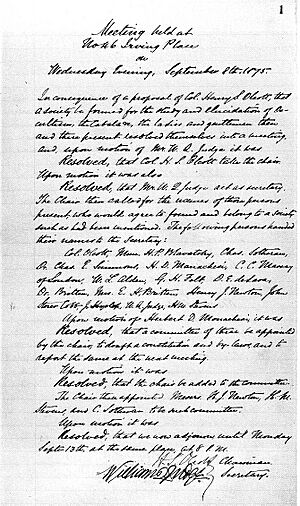 1
Meeting held at
No 46 Irving Place
on
Wednesday Evening, September 8th. 1875.
In consequence of a proposal of Col. Henry S. Olcott, that
a Society be formed for the study and elucidation of Oc-
cultism, the Cabala &c, the ladies and gentlemen then
and there present resolved themselves into a meeting
and, upon motion of Mr. W. Q. Judge it was
Resolved, that Col. H. S. Olcott take the chair.
Upon motion it was also
Resolved, that Mr. W. Q. Judge act as secretary.
The Chair then called for the names of those persons
present, who would agree to found and belong to a society
such as had been mentioned. The following persons handed
their names to the Secretary:
Col. Olcott, Mme H. P. Blavatsky, Chas. Sotheran,
Dr. Chas E. Simmons, H. D. Monachesi, C. C. Massey
of London, W. L. Alden, G. H. Felt, D. E. de Lara,
Dr. Britten, Mrs. E. H. Britten, Henry J. Newton, John
Storer Cobb, J. Hyslop, W. Q. Judge, H. M. Stevens
Upon motion of Herbert D. Monachesi it was
Resolved, that a committee of three be appointed
by the chair, to draft a constitution and by laws, and to
report the same at the next meeting.
Upon motion it was
Resolved, that the chair be added to the committee.
The Chair then appointed Messrs H. J. Newton, H. M.
Stevens, and C. Sotheran to be such committee.
Upon motion it was
Resolved, that we now adjourn until Monday
Septr 13th, at the same place, at 8 P.M.
Chairman
William Q Judge
Secretary.